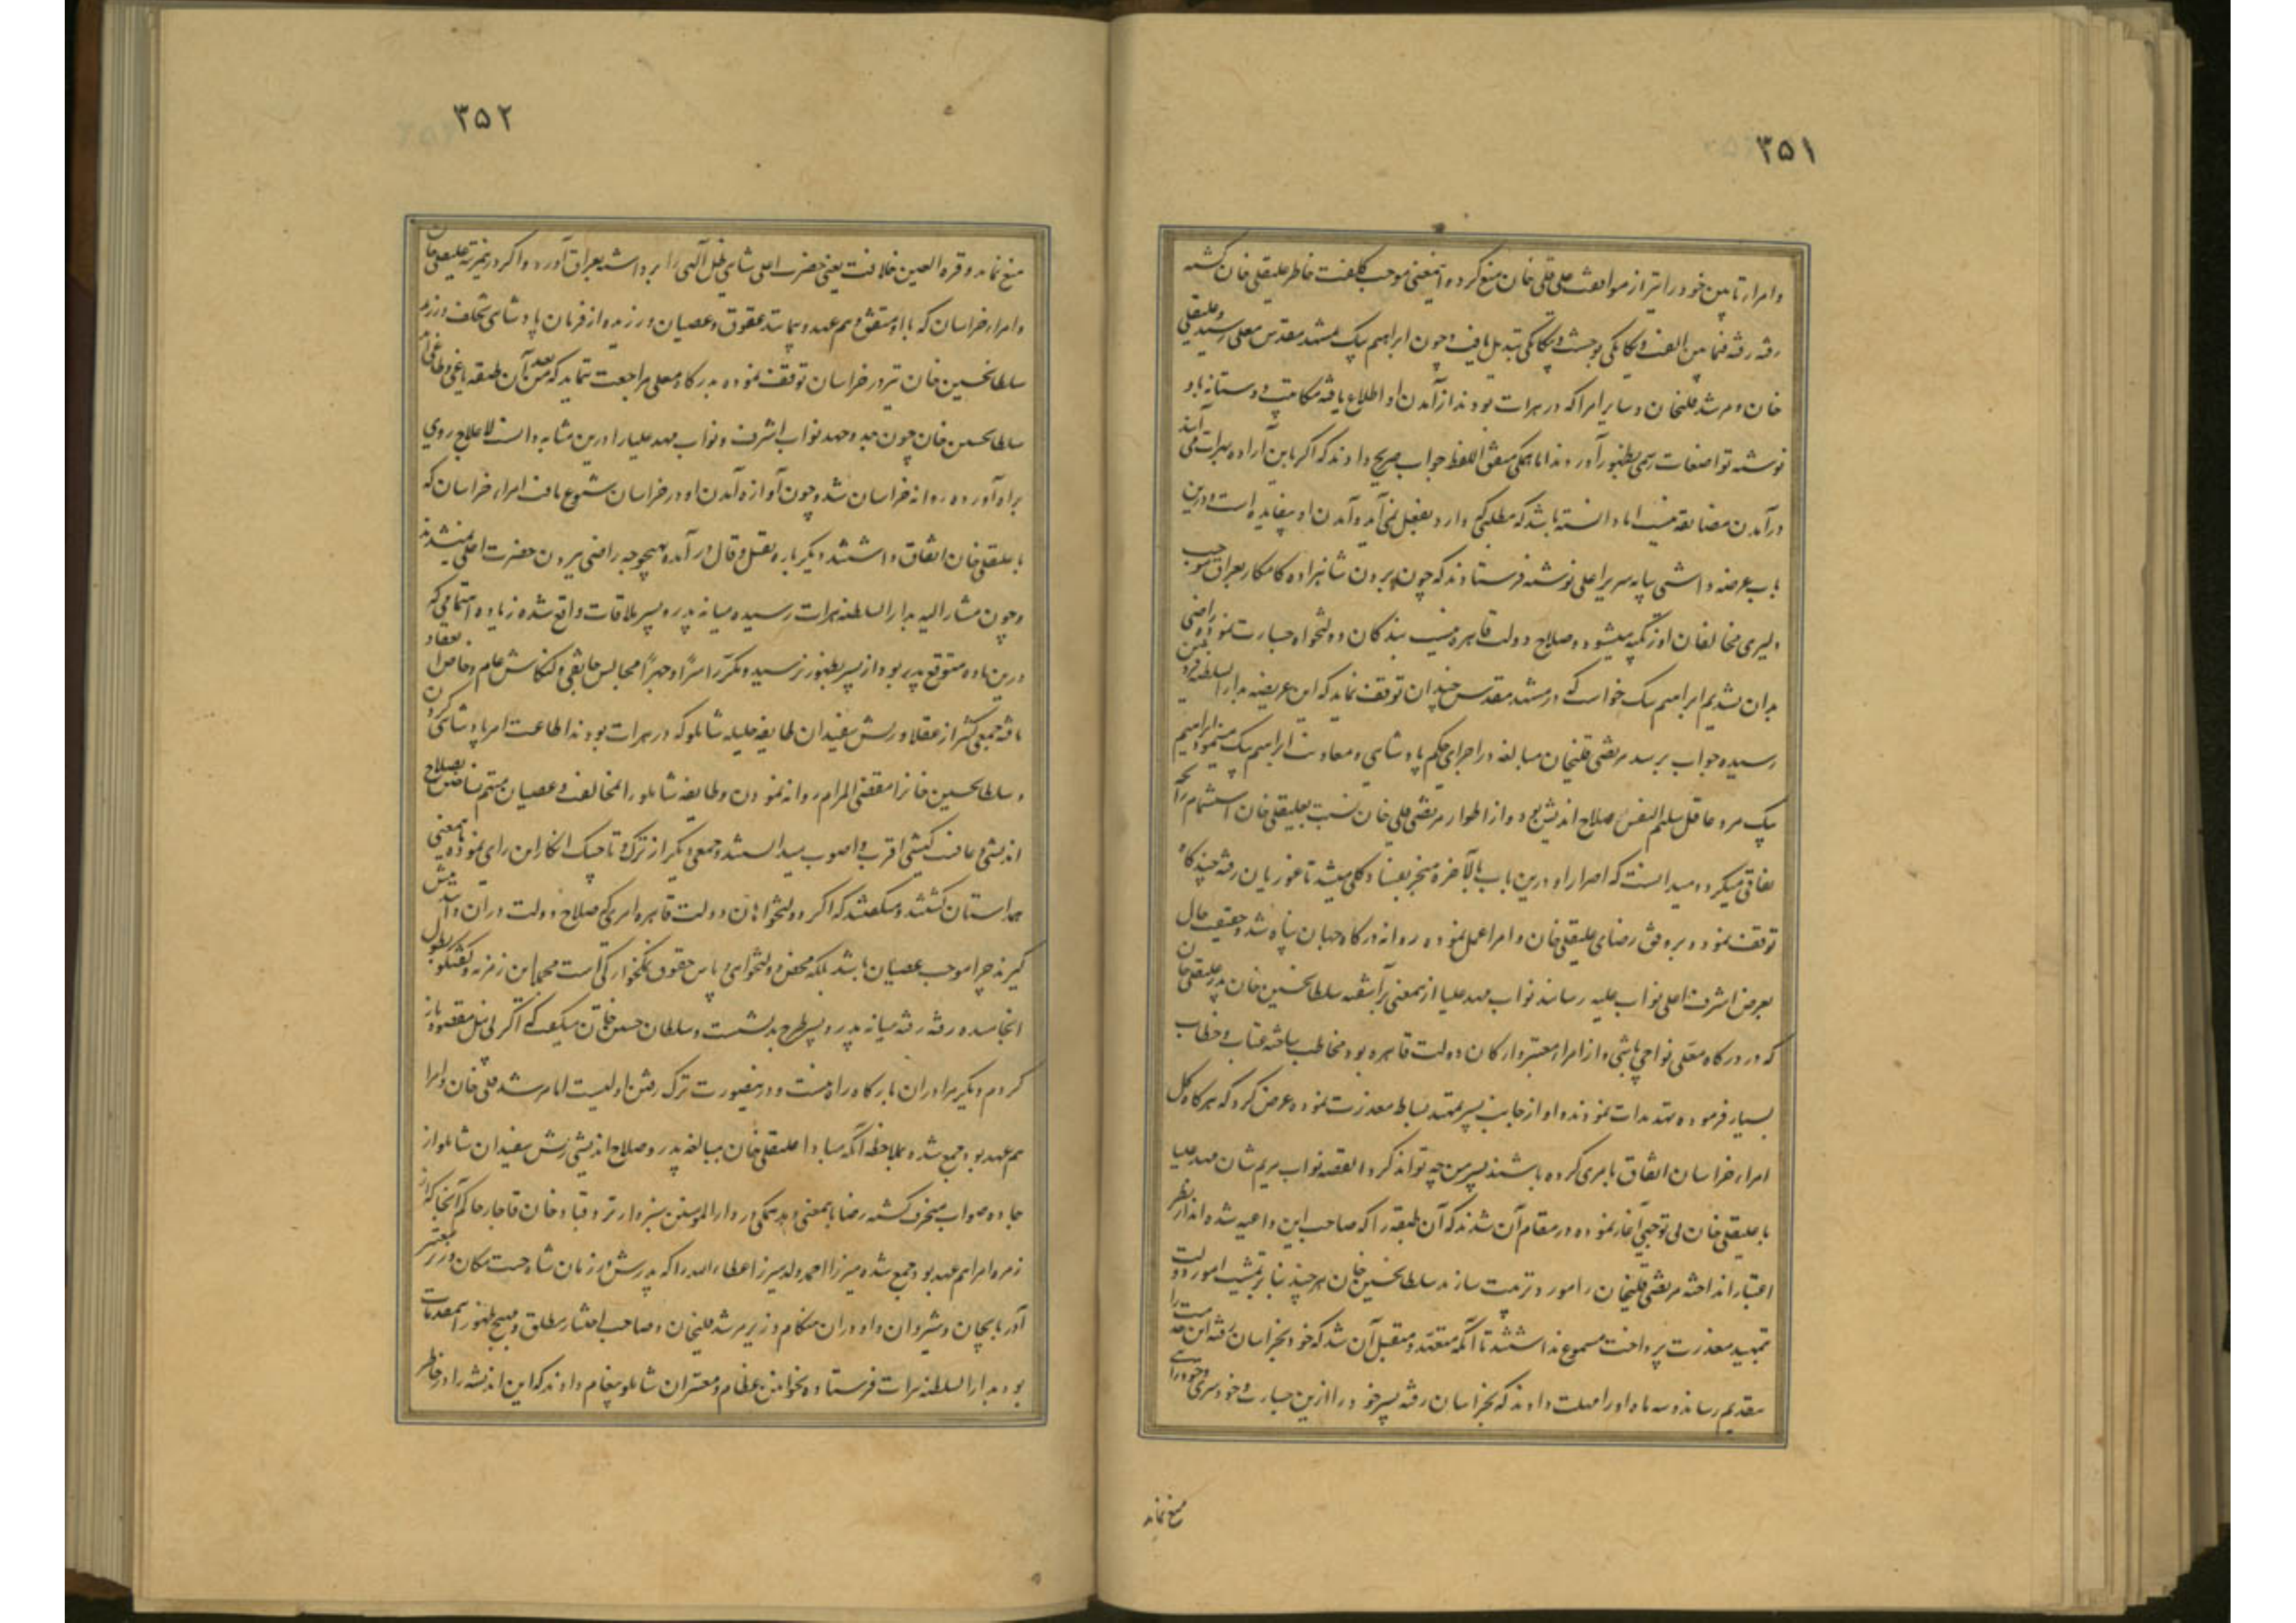 ۳۵۱
و امراء تابین خود را نیز از موافقت علی قلی خان منع کرده اینمعنی موجب کلفت خاطر علیقلی خان گشته
رفته رفته فیمابین الفت و یکانکی بوحشت و بیکانکی تبدیل یافت و چون ابراهیم بیک بمشهد مقدس معلی رسید و علیقلی
خان و مرشد قلیخان و سایر امرا که در هرات بودند از آمدن او اطلاع یافته مکاتیب دوستانه باو
نوشته تواضعات رسمی بظهور آوردند اما همکی متفق اللفظ جواب صریح دادند که اکر باین اراده بهرات می آیند
در آمدن مضایقه نیست اما دانسته باشد که مطلبی که دارد بفعل نمی آید و آمدن او بیفایده است و درین
باب عرضه داشتی بپایه سریر اعلی نوشته فرستادند که چون بردن شاهزاده کامکار بعراق موجب
دلیری مخالفان اوزبکیه میشود و صلاح دولت قاهره نیست بندکان دولتخواه جسارت نموده راضی
بدان نشدیم ابراهیم بیک خواست که در مشهد مقدس چندان توقف نماید که این عریضه بدار السلطنه قزوین
رسیده جواب برسد مرتضی قلیخان مبالغه در اجرای حکم پادشاهی و معاونت ابراهیم بیک مینمود ابراهیم
بیک مرد عاقل سلیم النفس صلاح اندیش بود و از اطوار مرتضی قلی خان نسبت بعلیقلی خان استشمام رایحه
نفاقی میکرد و میدانست که اصرار او درین باب بالآخره منجر بفساد کلی میشد تا غوریان رفته چند کاه
توقف نموده بر وفق رضای علیقلی خان و امرا عمل نموده روانه درکاه جهان پناه شد و حقیقت حال
بعرض اشرف اعلی نواب علیه رسانید نواب مهد علیا ازینمعنی برآشفته سلطانحسین خان پدر علیقلی خان
که در درکاه معلی تواجی باشی و از امراء معتبر و ارکان دولت قاهره بود مخاطب ساخته عتاب و خطاب
بسیار فرموده تهدیدات نمودند و او از جانب پسر تمهید بساط معذرت نموده عرض کرد که هر کاه کل
امراء خراسان اتفاق بامری کرده باشند پسر من چه تواند کرد القصه نواب مریم شان مهد علیا
با علیقلی خان بی توجهی آغاز نموده در مقام آن شدند که آن طبقه را که صاحب این داعیه شده اند از نظر
اعتبار انداخته مرتضی قلیخان را مورد تربیت سازند سلطانحسین خان هر چند بنا بر تمشیت امور دولت
تمهید معذرت پرداخت مسموع نداشتند تا آنکه متعهد و متقبل آن شد که خود بخراسان رفته این خدمت را
بتقدیم رساند و سه ماه او را مهلت دادند که بخراسان رفته پسر خود را ازین جسارت و خودسری و خودرائی
منع نماید
۳۵۲
منع نماید و قره العین خلافت یعنی حضرت اعلی شاهی ظل آلهی را برداشته بعراق آورد و اکر درینمرتبه علیقلی خان
و امراء خراسان که با او متفق و هم عهد و پیمانند عقوق و عصیان ورزیده از فرمان پادشاهی تخلف ورزند
سلطانحسین خان نیز در خراسان توقف ننموده بدرکاه معلی مراجعت نماید که من بعد آن طبقه یاغی و طاغی اند
سلطانحسین خان چون جد و جهد نواب اشرف و نواب مهد علیا را درین مثابه دانست لاعلاج روی
براه آورده روانه خراسان شد و چون آوازه آمدن او در خراسان شیوع یافت امراء خراسان که
با علیقلی خان اتفاق داشتند دیکر باره بقیل و قال درآمده بهیچوجه راضی ببردن حضرت اعلی نمیشدند
و چون مشار الیه بدار السلطنه هرات رسیده میانه پدر و پسر ملاقات واقع شده زیاده اهتمامی که
درین ماده متوقع پدر بود از پسر بظهور نرسید و مکررا سرا و جهرا مجالس جانقی و کنکاش عام و خاص انعقاد
یافته جمعی کثیر از عقلا و ریش سفیدان طایفه جلیله شاملو که در هرات بودند اطاعت امر پادشاهی کردن
و سلطانحسین خانرا مقضی المرام روانه نمودن و طایفه شاملو را بمخالفت و عصیان متهم نساختن بصلاح
اندیشی و عافیت کیشی اقرب و اصوب میدانستند و جمعی دیکر از ترک و تاجیک انکار این رای نموده باینمعنی
همداستان کشتند و میکفتند که اکر دولتخواهان دولت قاهره امری که صلاح دولت در آن دانند پیش
کیرند چرا موجب عصیان باشد بلکه محض دولتخواهی و پاس حقوق نمکخوارکی است مجملا این زمزمه و کفتکو بطول
انجامیده رفته رفته میانه پدر و پسر طرح بد نشست و سلطان حسین خان میکفت که اکر بی نیل مقصود باز
کردم دیکر مرا در آن بارکاه راه نیست و درینصورت ترک رفتن اولیست اما مرشد قلی خان و امرا
هم عهد بود جمع شده بملاحظه آنکه مبادا علیقلی خان بمبالغه پدر و صلاح اندیشی ریش سفیدان شاملو از
جاده صواب منحرف کشته رضا باینمعنی دهد همکی در دار المومنین سبزوار نزد قباد خان قاجار حاکم آنجا که از
زمره امراء هم عهد بود جمع شده میرزا احمد ولد میرزا عطاء الله را که پدرش در زمان شاه جنت مکان وزیر معتبر
آذربایجان و شیروان و او در آن هنکام وزیر مرشد قلیخان و صاحب اختیار مطلق و مهیج ظهور این مقدمات
بود بدار السلطنه هرات فرستاده بخوانین عظام و معتبران شاملو پیغام دادند که این اندیشه را در خاطر